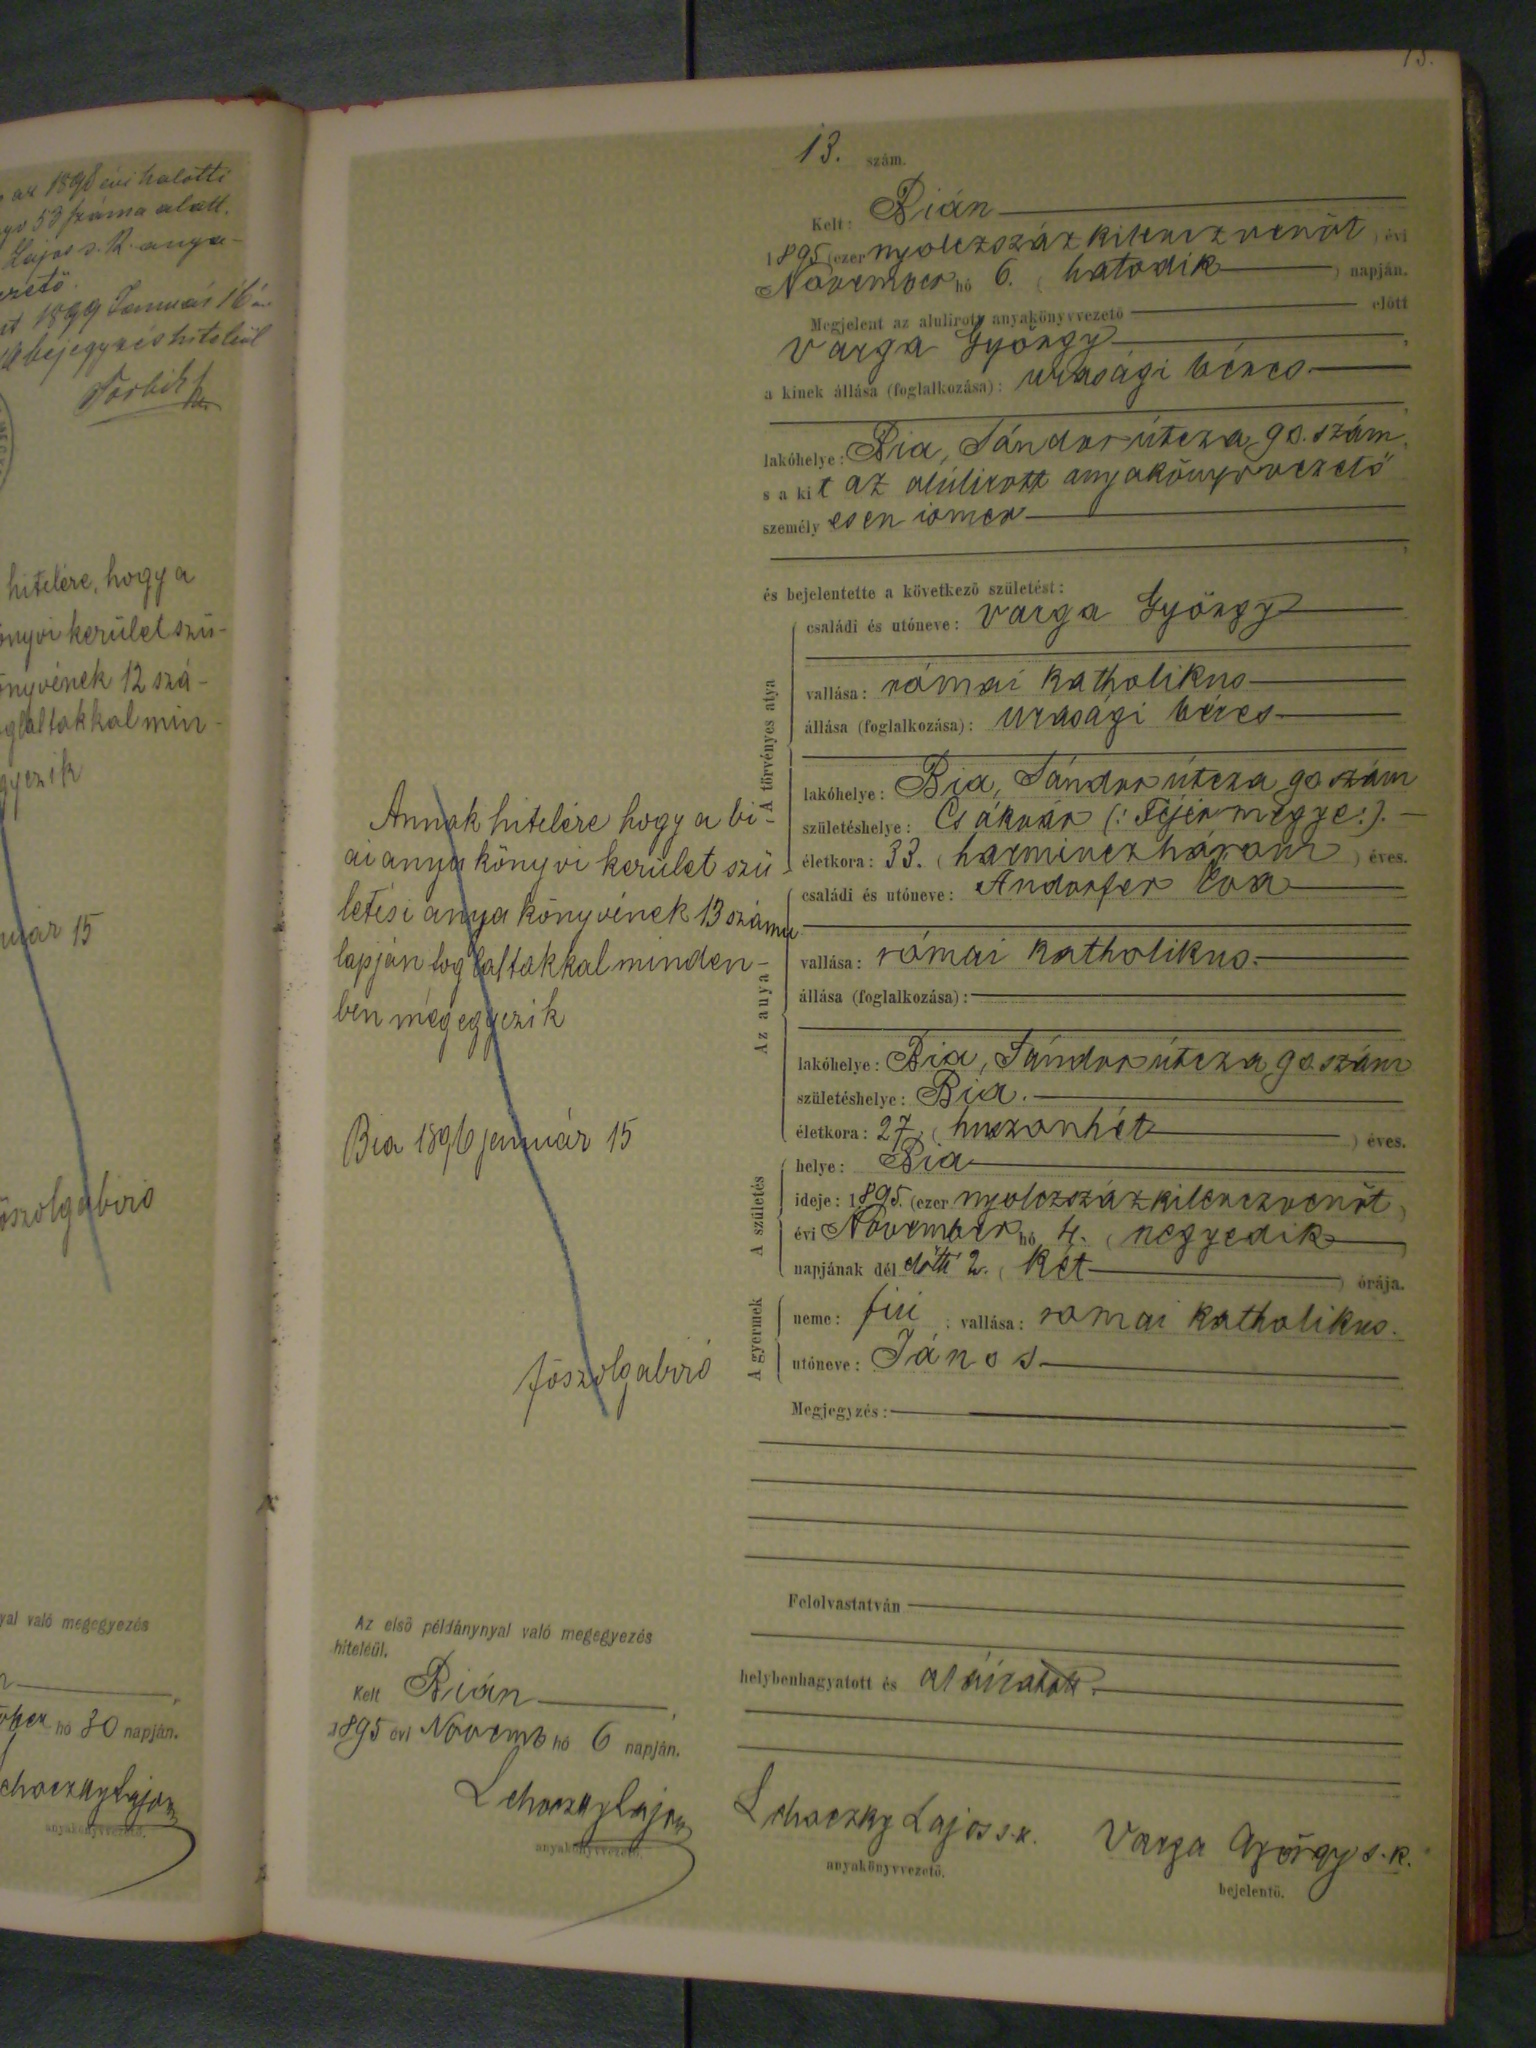 az 1896 évi halotti
53 száma alatt.
Lajos s. k. anya-
1899 Január 16
bejegyzés hiteléül
hitelére, hogy a
önyvi kerület szü-
önyvének 12 szá-
oglaltakkal min-
gyezik
uár 15
őszolgabiró
yal való megegyezés
hó 30 napján.
anyakönyvvezető.
13.
13. szám.
Kelt: Bián
1895 (ezer nyolczszáz kilenczvenöt) évi
November hó 6. (hatodik) napján.
Megjelent az alulirott anyakönyvvezető előtt
Varga György,
a kinek állása (foglalkozása): urasági béres
lakóhelye: Bia, Sándor útcza 90. szám,
s a kit az alúlirott anyakönyvvezető
személy esen ismer
és bejelentette a következő születést:
A törvényes atya
családi és utóneve: Varga György
vallása: római katholikus
állása (foglalkozása): urasági béres
lakóhelye: Bia, Sándor útcza 90 szám
születéshelye: Csákvár (: Fejér megye:).
életkora: 33. (harminczhárom) éves.
Az anya
családi és utóneve: Andorfer Éva
vallása: római katholikus.
állása (foglalkozása):
lakóhelye: Bia, Sándor útcza 90. szám
születéshelye: Bia.
életkora: 27. (huszonhét) éves.
A születés
helye: Bia
ideje: 1895. (ezer nyolczszáz kilenczvenöt)
évi November hó 4. (negyedik)
napjának dél előtti 2. (két) órája.
A gyermek
neme: fiú; vallása: romai katholikus.
utóneve: János
Megjegyzés:
Felolvastatván
helybenhagyatott és aláiratott.
Lehoczky Lajos s. k.
anyakönyvvezető.
Varga György s. k.
bejelentő.
Annak hitelére hogy a bi-
ai anya könyvi kerület szü
letési anya könyvének 13 számu
lapján foglaltakkal minden-
ben megegyezik
Bia 1896 január 15
főszolgabiró
Az első példánynyal való megegyezés
hiteléül.
Kelt Bián,
1895 évi Novemb hó 6 napján.
Lehoczky Lajos
anyakönyvvezető.